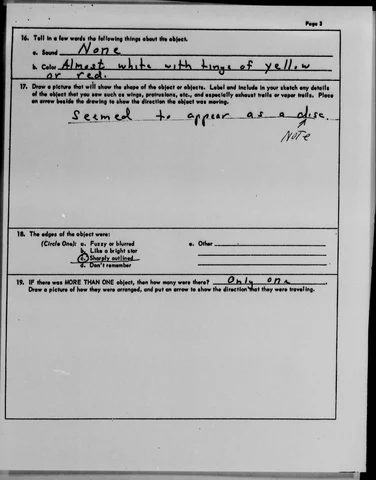 Page 2
16. Tell in a few words the following things about the object.
a. Sound None
b. Color Almost white with tinge of yellow
or red.
17. Draw a picture that will show the shape of the object or objects. Label and include in your sketch any details
of the object that you saw such as wings, protrusions, etc., and especially exhaust trails or vapor trails. Place
an arrow beside the drawing to show the direction the object was moving.
Seemed to appear as a disc
NOTE
18. The edges of the object were:
(Circle One): a. Fuzzy or blurred e. Other
b. Like a bright star
c. Sharply outlined
d. Don't remember
19. IF there was MORE THAN ONE object, then how many were there? Only one
Draw a picture of how they were arranged, and put an arrow to show the direction that they were traveling.